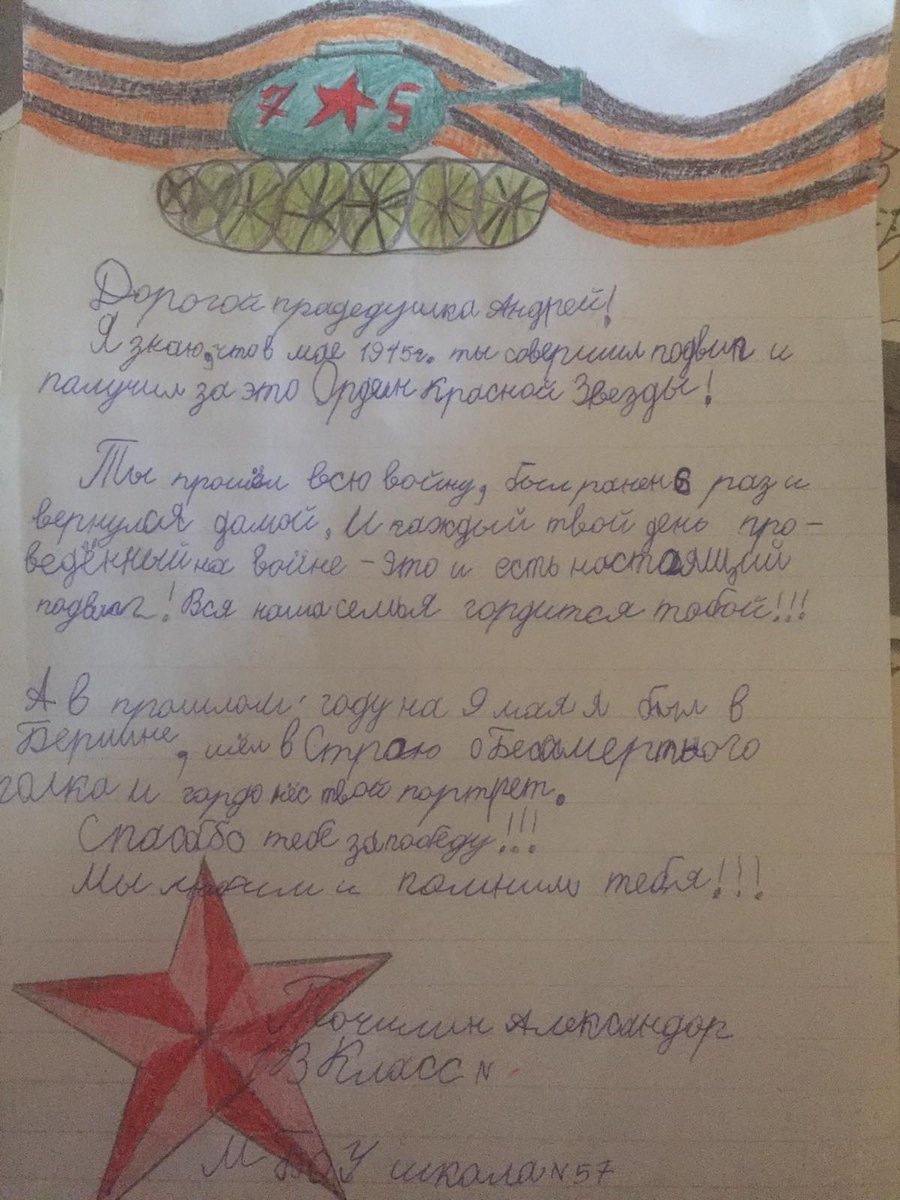 7 5
Дорогой прадедушка Андрей!
Я знаю, что в мае 1945г. ты совершил подвиг и
получил за это Орден Красной Звезды!
Ты прошёл всю войну, был ранен 6 раз и
вернулся домой. И каждый твой день про-
ведённый на войне - это и есть настоящий
подвиг! Вся наша семья гордится тобой!!!
А в прошлом году на 9 мая я был в
Берлине, шёл в Строю Бессмертного
полка и гордо нёс твой портрет.
Спасибо тебе за победу!!!
Мы любим и помним тебя!!!
Точилин Александор
3 Класс
МБОУ школа №57